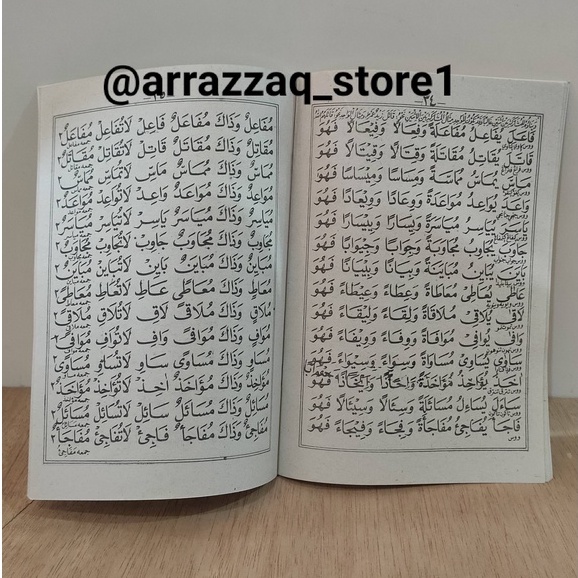 @arrazzaq_store1
٣٤
فَاعَلَ يُفَاعِلُ مُفَاعَلَةً وَفِعَالًا وَفِيْعَالًا فَهُوَ
قَاتَلَ يُقَاتِلُ مُقَاتَلَةً وَقِتَالًا وَقِيْتَالًا فَهُوَ
مَاسَّ يُمَاسُّ مُمَاسَّةً وَمِسَاسًا وَمِيْسَاسًا فَهُوَ
وَاعَدَ يُوَاعِدُ مُوَاعَدَةً وَوِعَادًا وَوِيْعَادًا فَهُوَ
يَاسَرَ يُيَاسِرُ مُيَاسَرَةً وَيِسَارًا وَيِيْسَارًا فَهُوَ
جَاوَبَ يُجَاوِبُ مُجَاوَبَةً وَجِوَابًا وَجِيْوَابًا فَهُوَ
بَايَنَ يُبَايِنُ مُبَايَنَةً وَبِيَانًا وَبِيْيَانًا فَهُوَ
عَاطَى يُعَاطِى مُعَاطَاةً وَعِطَاءً وَعِيْطَاءً فَهُوَ
لَاقَى يُلَاقِى مُلَاقَاةً وَلِقَاءً وَلِيْقَاءً فَهُوَ
وَافَى يُوَافِى مُوَافَاةً وَوِفَاءً وَوِيْفَاءً فَهُوَ
سَاوَى يُسَاوِى مُسَاوَاةً وَسِوَاءً وَسِيْوَاءً فَهُوَ
آخَذَ يُؤَاخِذُ مُؤَاخَذَةً فَهُوَ
سَاءَلَ يُسَاءِلُ مُسَائَلَةً وَسِئَالًا وَسِيْئَالًا فَهُوَ
فَاجَأَ يُفَاجِئُ مُفَاجَأَةً وَفِجَاءً وَفِيْجَاءً فَهُوَ
مُفَاعِلٌ وَذَاكَ مُفَاعَلٌ فَاعِلْ لَاتُفَاعِلْ مُفَاعَلٌ ٢
مُقَاتِلٌ وَذَاكَ مُقَاتَلٌ قَاتِلْ لَاتُقَاتِلْ مُقَاتَلٌ ٢
مُمَاسٌّ وَذَاكَ مُمَاسٌّ مَاسَّ لَاتُمَاسَّ مُمَاسٌّ ٢
مُوَاعِدٌ وَذَاكَ مُوَاعَدٌ وَاعِدْ لَاتُوَاعِدْ مُوَاعَدٌ ٢
مُيَاسِرٌ وَذَاكَ مُيَاسَرٌ يَاسِرْ لَاتُيَاسِرْ مُيَاسَرٌ ٢
مُجَاوِبٌ وَذَاكَ مُجَاوَبٌ جَاوِبْ لَاتُجَاوِبْ مُجَاوَبٌ ٢
مُبَايِنٌ وَذَاكَ مُبَايَنٌ بَايِنْ لَاتُبَايِنْ مُبَايَنٌ ٢
مُعَاطٍ وَذَاكَ مُعَاطًى عَاطِ لَاتُعَاطِ مُعَاطًى ٢
مُلَاقٍ وَذَاكَ مُلَاقًى لَاقِ لَاتُلَاقِ مُلَاقًى ٢
مُوَافٍ وَذَاكَ مُوَافًى وَافِ لَاتُوَافِ مُوَافًى ٢
مُسَاوٍ وَذَاكَ مُسَاوًى سَاوِ لَاتُسَاوِ مُسَاوًى ٢
مُؤَاخِذٌ وَذَاكَ مُؤَاخَذٌ آخِذْ لَاتُؤَاخِذْ مُؤَاخَذٌ ٢
مُسَائِلٌ وَذَاكَ مُسَائَلٌ سَائِلْ لَاتُسَائِلْ مُسَائَلٌ ٢
مُفَاجِئٌ وَذَاكَ مُفَاجَأٌ فَاجِئْ لَاتُفَاجِئْ مُفَاجَأٌ ٢